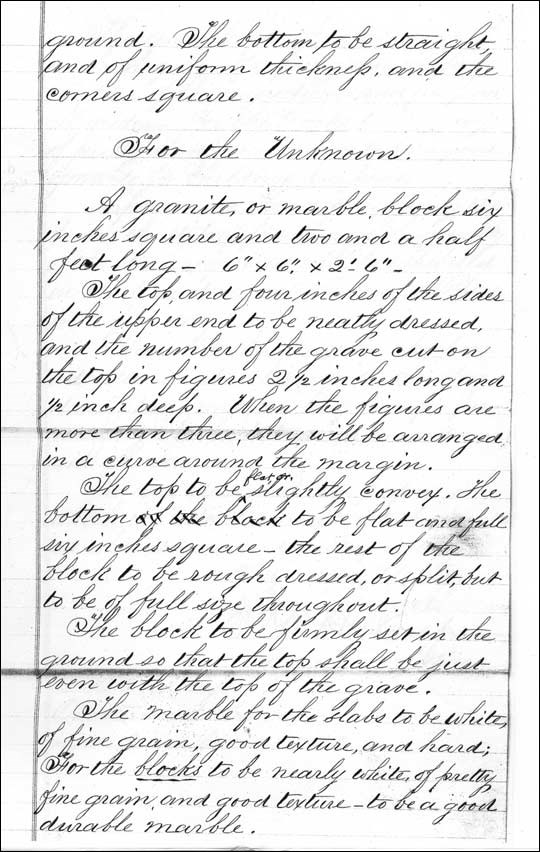 ground. The bottom to be straight,
and of uniform thickness, and the
corners square.
For the Unknown.
A granite, or marble, block six
inches square and two and a half
feet long – 6" x 6". x 2'. 6" –
The top, and four inches of the sides
of the upper end to be neatly dressed,
and the number of the grave cut on
the top in figures 2 1/2 inches long and
1/2 inch deep. When the figures are
more than three, they will be arranged
in a curve around the margin.
flat, or
The top to be slightly convex. The
bottom of the block to be flat and full
six inches square – the rest of the
block to be rough dressed, or split, but
to be of full size throughout.
The block to be firmly set in the
ground so that the top shall be just
even with the top of the grave.
The marble for the slabs to be white,
of fine grain, good texture, and hard;
For the blocks to be nearly white, of pretty
fine grain, and good texture – to be a good
durable marble.